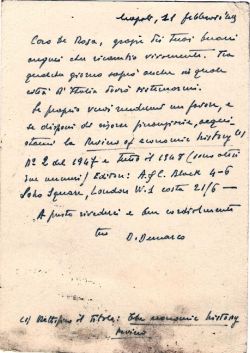 Napoli, 21 febbraio
Caro De Rosa, grazie dei tuoi buoni
auguri che ricambio vivamente. Tra
qualche giorno saprò anche in quale
città d'Italia dovrò
Se proprio vuoi rendermi un favore, e
se disponi di risorse finanziarie, acqui-
stami la Review of economic history (1)
N° 2 del 1947 e tutto il 1948 (sono
due numeri) Editor: A. & C. Black 4-6
Soho Square, London W. 1 costa 21/6 —
A presto rivederci e ben cordialmente
tuo
D. Demarco
(1) il titolo: The economic history
review